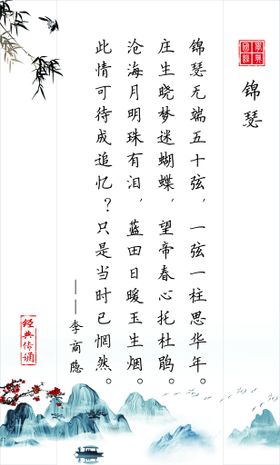 锦瑟
锦瑟无端五十弦，一弦一柱思华年。
庄生晓梦迷蝴蝶，望帝春心托杜鹃。
沧海月明珠有泪，蓝田日暖玉生烟。
此情可待成追忆？只是当时已惘然。
——李商隐
经典传诵